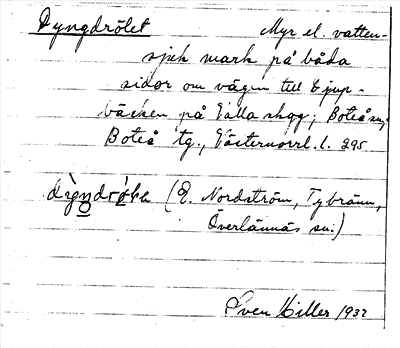 Dyngdrölet Myr el. vatten-
sjuk mark på båda
sidor om vägen till Djup-
bäcken på Valla skog; Boteå sn,
Boteå tg., Västernorrl. l. 295
(E. Nordström, Tybränn,
Överlännäs sn.)
Sven Hiller 1932